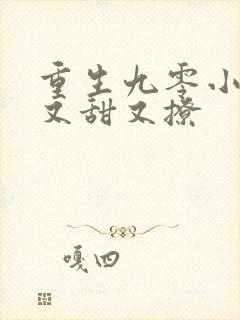 重生九零小
又甜又撩
嘎四